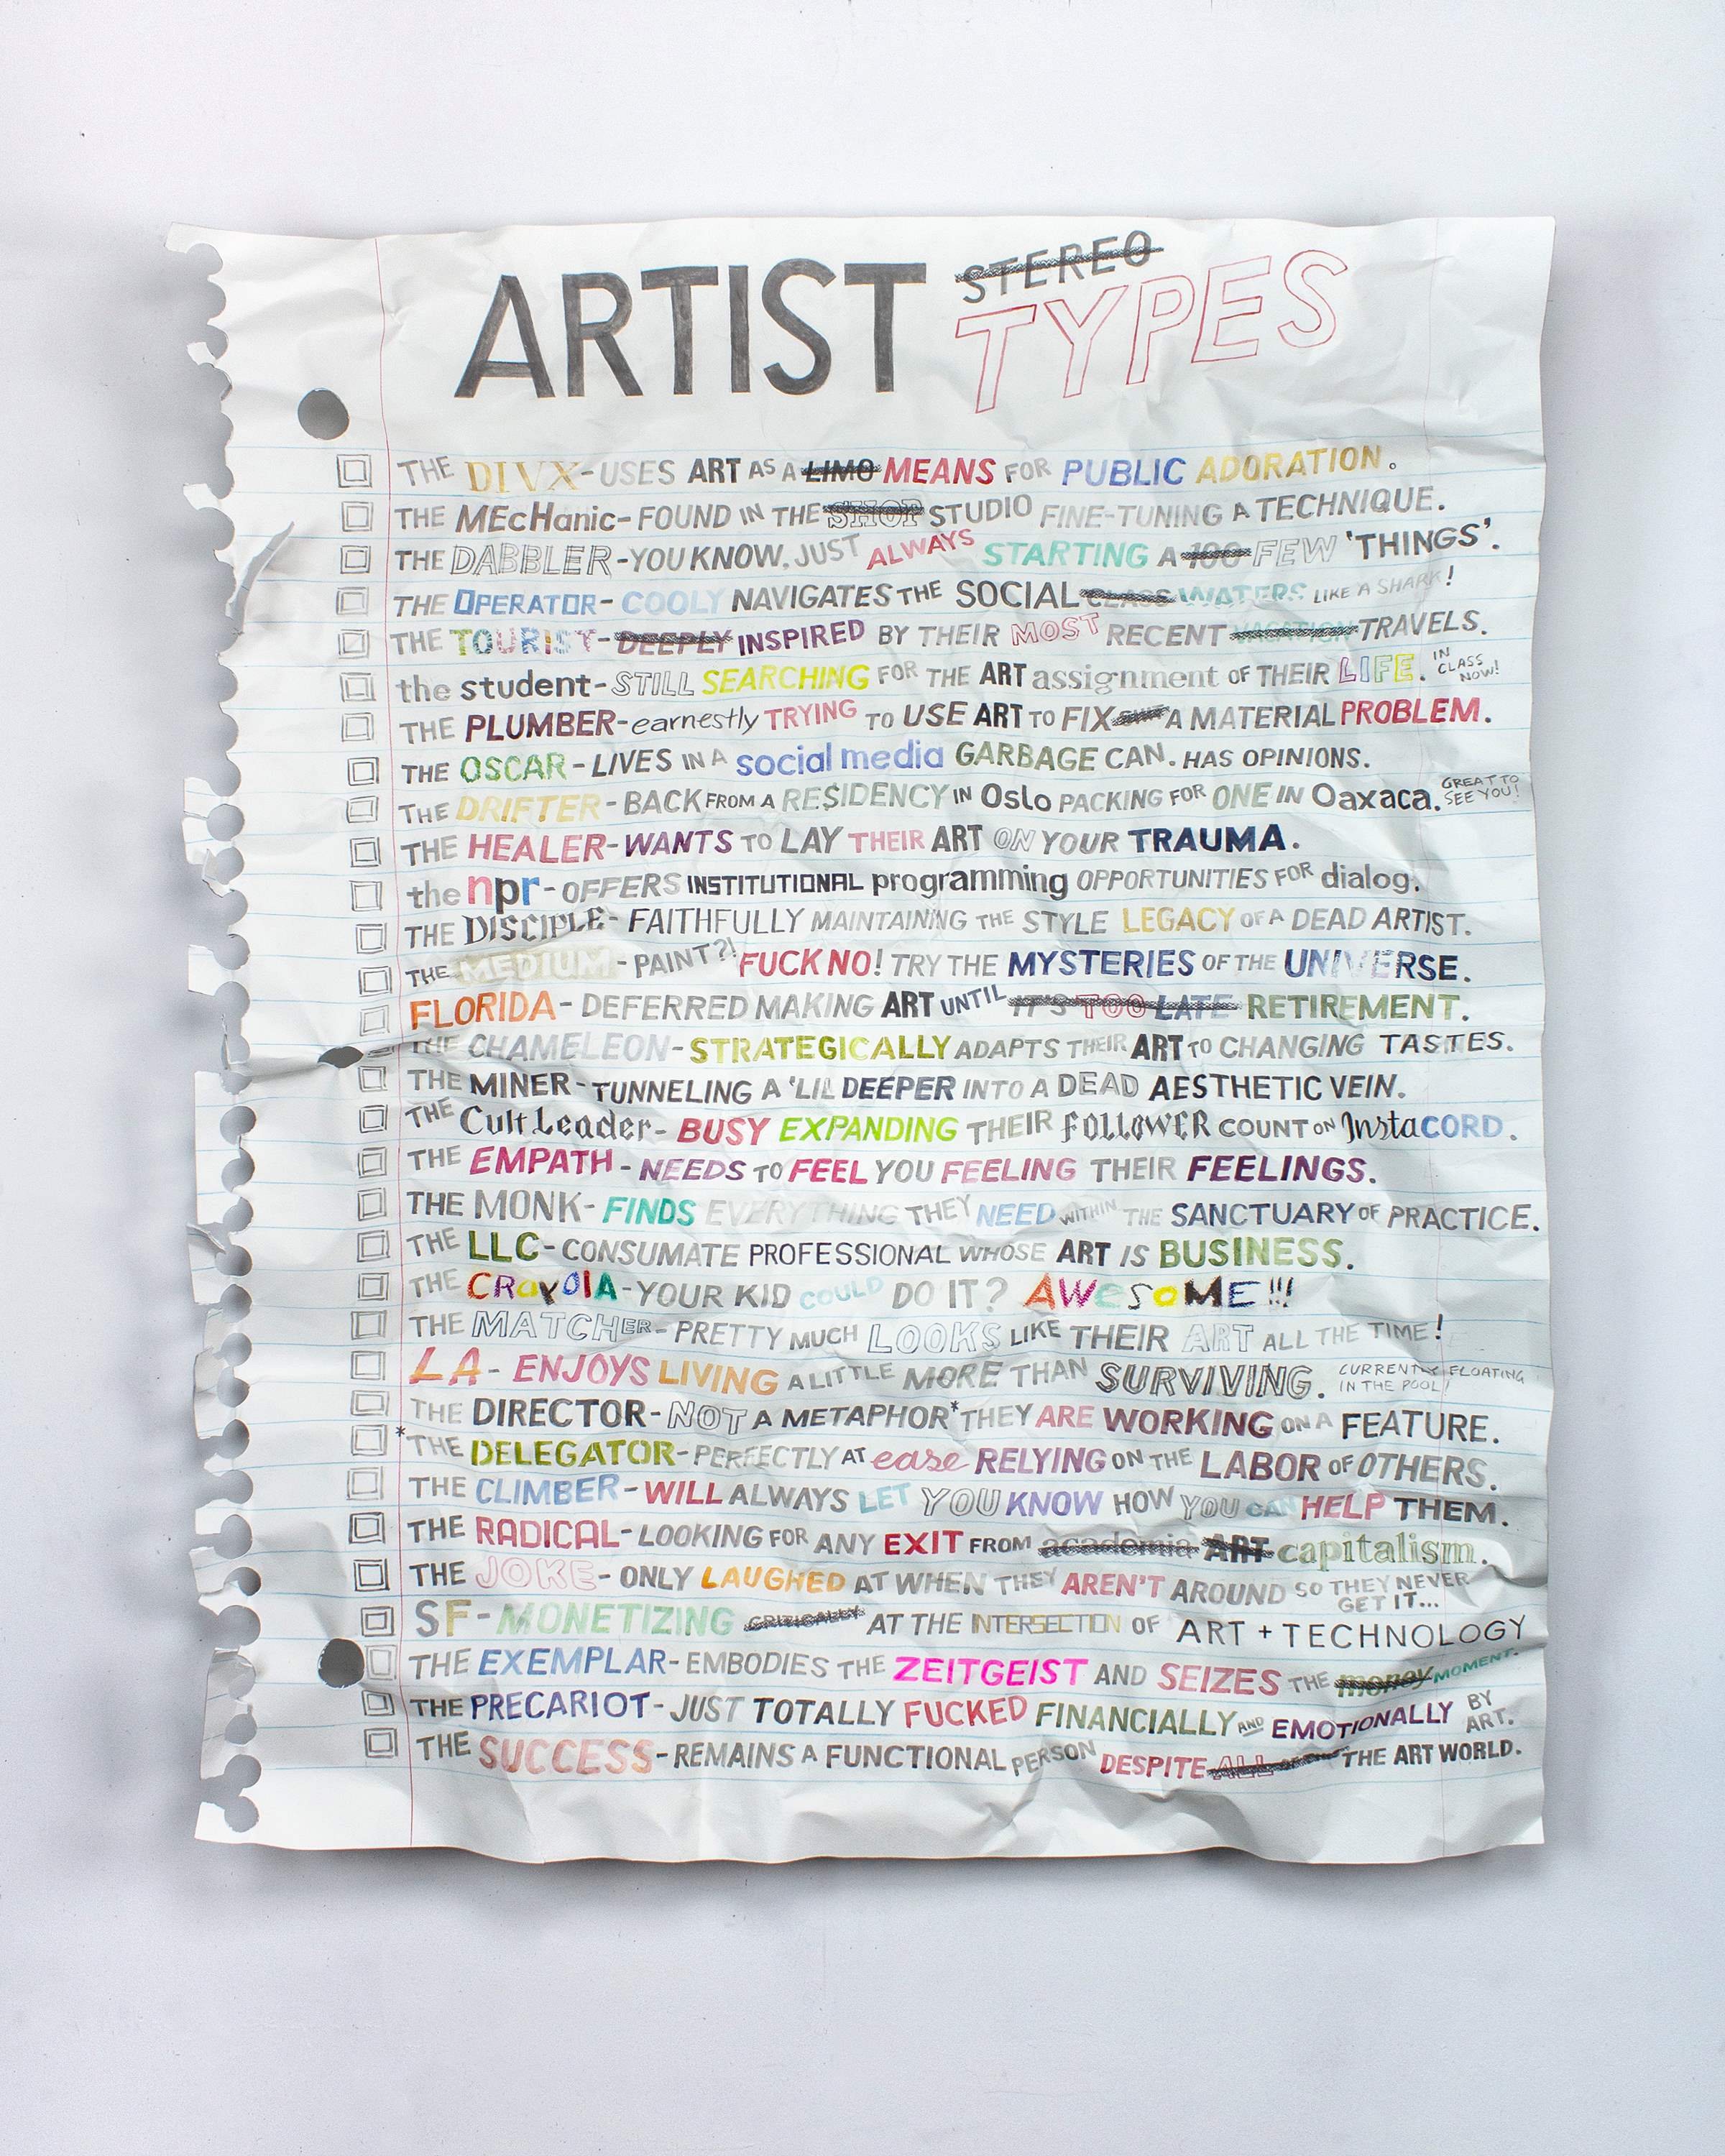 ARTIST STEREO TYPES
THE DIVX - USES ART AS A LIMO MEANS FOR PUBLIC ADORATION.
THE MEcHanic - FOUND IN THE SHOP STUDIO FINE-TUNING A TECHNIQUE.
THE DABBLER - YOU KNOW, JUST ALWAYS STARTING A 100 FEW 'THINGS'.
THE OPERATOR - COOLY NAVIGATES THE SOCIAL CLASS WATERS LIKE A SHARK!
THE TOURIST - DEEPLY INSPIRED BY THEIR MOST RECENT VACATION TRAVELS.
the student - STILL SEARCHING FOR THE ART assignment OF THEIR LIFE. IN CLASS NOW!
THE PLUMBER - earnestly TRYING TO USE ART TO FIX A MATERIAL PROBLEM.
THE OSCAR - LIVES IN A social media GARBAGE CAN. HAS OPINIONS.
THE DRIFTER - BACK FROM A RESIDENCY IN Oslo PACKING FOR ONE IN Oaxaca. GREAT TO SEE YOU!
THE HEALER - WANTS TO LAY THEIR ART ON YOUR TRAUMA.
the npr - OFFERS INSTITUTIONAL programming OPPORTUNITIES FOR dialog.
THE DISCIPLE - FAITHFULLY MAINTAINING THE STYLE LEGACY OF A DEAD ARTIST.
THE MEDIUM - PAINT?! FUCK NO! TRY THE MYSTERIES OF THE UNIVERSE.
FLORIDA - DEFERRED MAKING ART UNTIL IT'S TOO LATE RETIREMENT.
THE CHAMELEON - STRATEGICALLY ADAPTS THEIR ART TO CHANGING TASTES.
THE MINER - TUNNELING A 'LIL DEEPER INTO A DEAD AESTHETIC VEIN.
THE Cult Leader - BUSY EXPANDING THEIR FOLLOWER COUNT ON InstaCORD.
THE EMPATH - NEEDS TO FEEL YOU FEELING THEIR FEELINGS.
THE MONK - FINDS EVERYTHING THEY NEED WITHIN THE SANCTUARY OF PRACTICE.
THE LLC - CONSUMATE PROFESSIONAL WHOSE ART IS BUSINESS.
THE CRayOlA - YOUR KID COULD DO IT? AWeSoME!!!
THE MATCHER - PRETTY MUCH LOOKS LIKE THEIR ART ALL THE TIME!
LA - ENJOYS LIVING A LITTLE MORE THAN SURVIVING. CURRENTLY FLOATING IN THE POOL!
THE DIRECTOR - NOT A METAPHOR* THEY ARE WORKING ON A FEATURE.
*THE DELEGATOR - PERFECTLY AT ease RELYING ON THE LABOR OF OTHERS.
THE CLIMBER - WILL ALWAYS LET YOU KNOW HOW YOU CAN HELP THEM.
THE RADICAL - LOOKING FOR ANY EXIT FROM academia ART capitalism.
THE JOKE - ONLY LAUGHED AT WHEN THEY AREN'T AROUND SO THEY NEVER GET IT...
SF - MONETIZING CRITICALLY AT THE INTERSECTION OF ART + TECHNOLOGY
THE EXEMPLAR - EMBODIES THE ZEITGEIST AND SEIZES THE money MOMENT.
THE PRECARIOT - JUST TOTALLY FUCKED FINANCIALLY AND EMOTIONALLY BY ART.
THE SUCCESS - REMAINS A FUNCTIONAL PERSON DESPITE ALL THE ART WORLD.